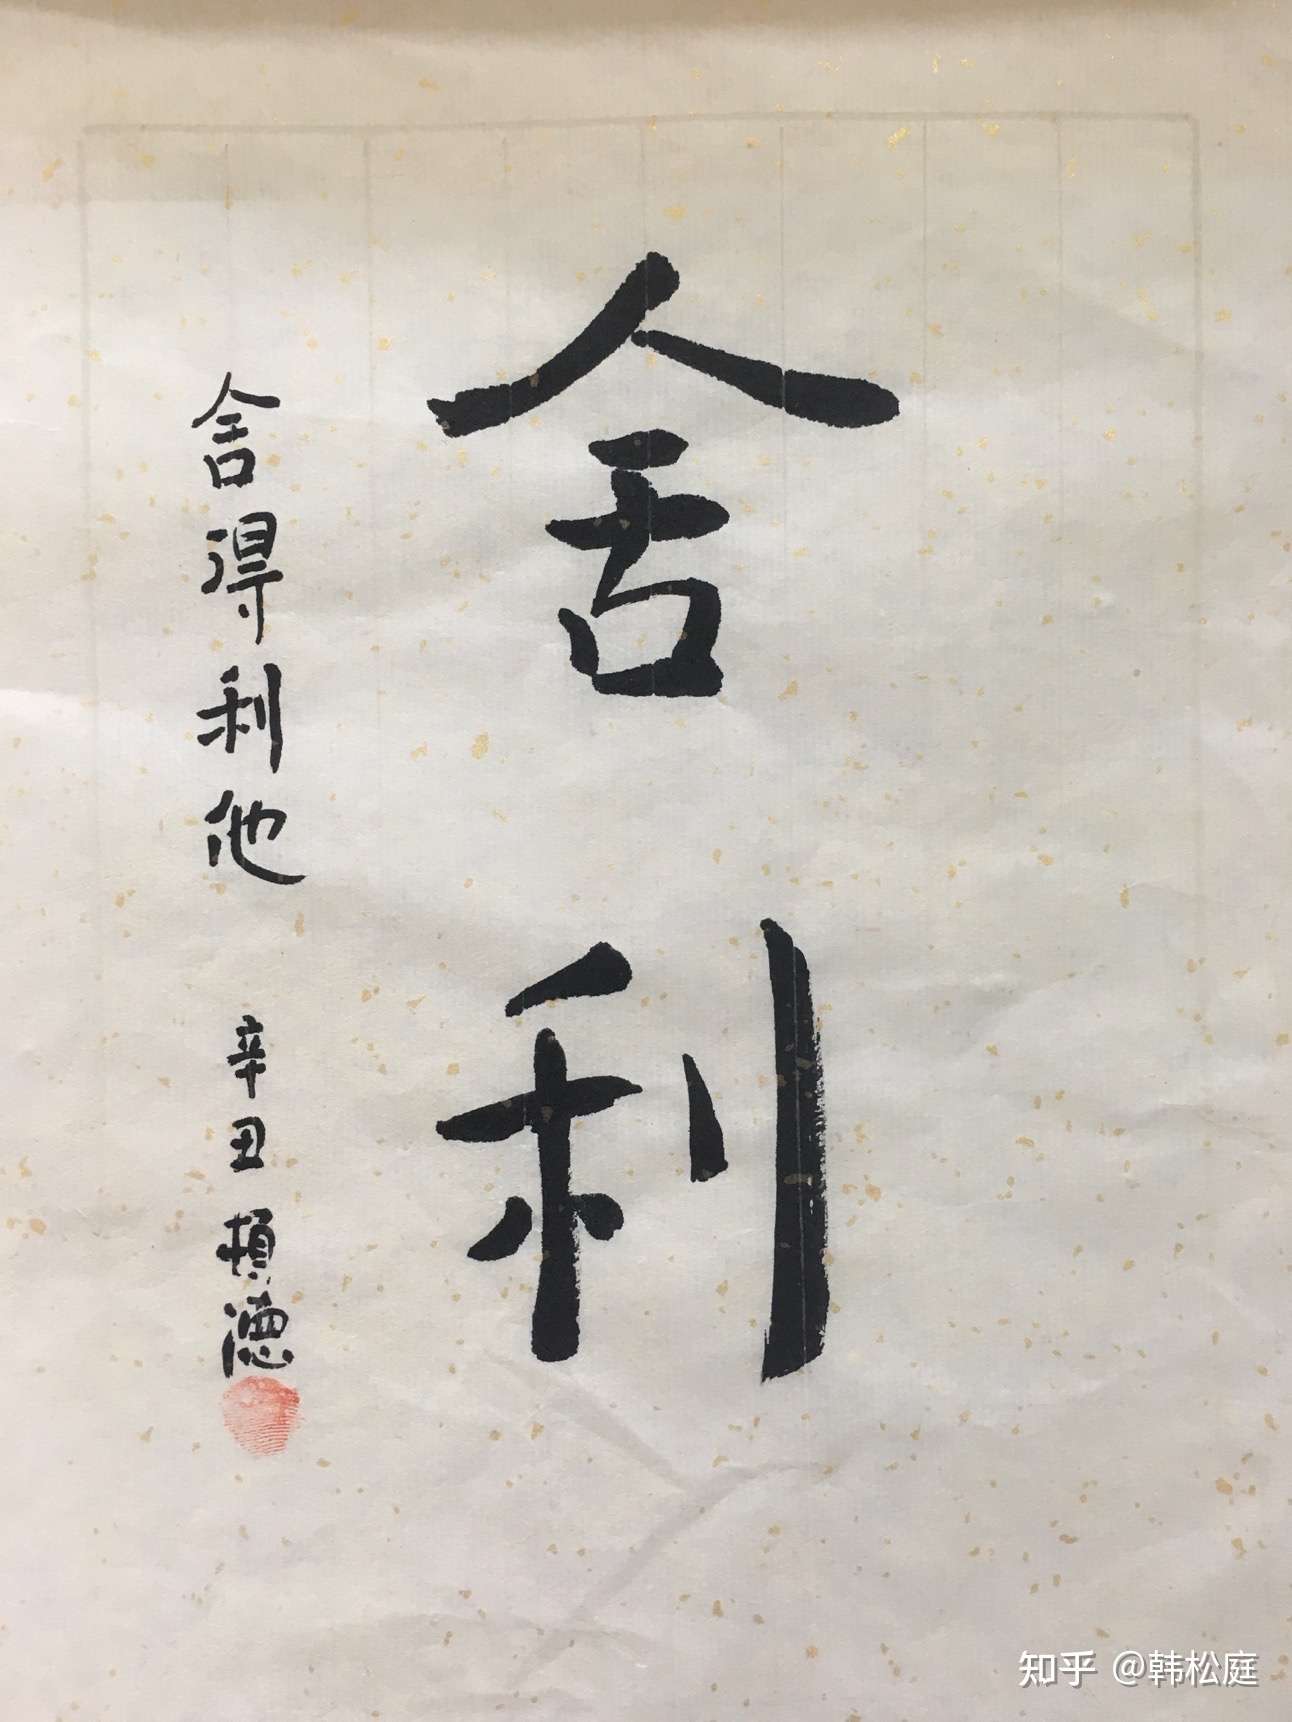 舍利
舍得利他
辛丑 楨德
知乎 @韩松庭